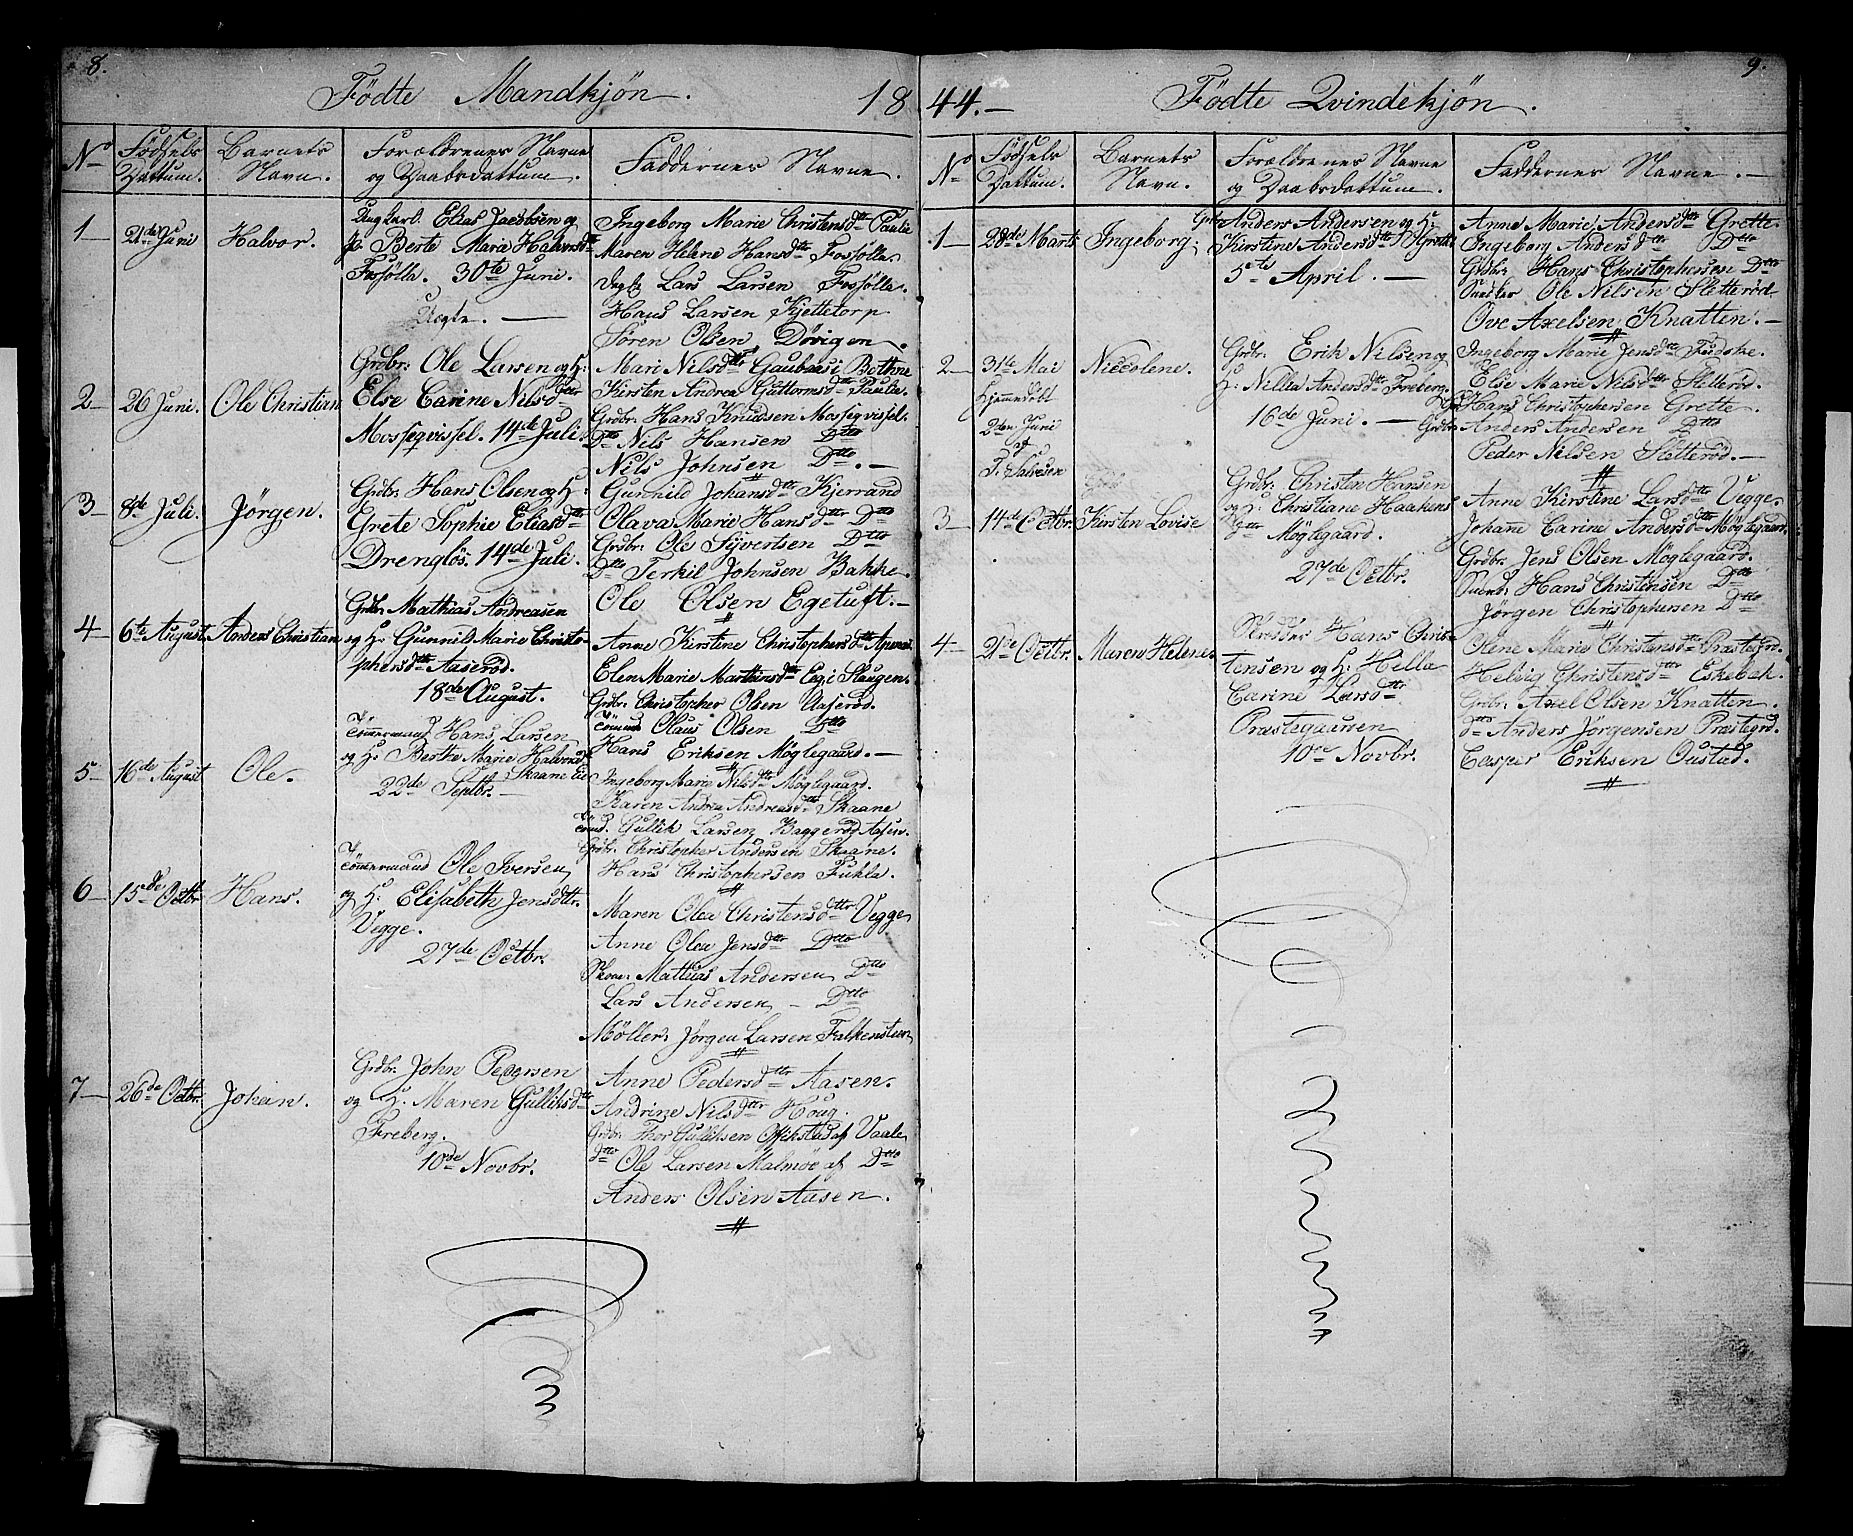 8.
Födte Mandkjøn. 18
No Födsels Dattum. Barnets Navn. Forældrenes Navne og Daabsdattum. Faddernes Navne.
1 21de Juni Halvor. Ungkarl. Elias Jacobsen og
P: Berte Marie Halvorsdttr
Fosfølla. 30te Juni.
Uægte.
Ingeborg Marie Christensdttr Paulie
Maren Helene Hansdttr Fosfølla.
Lars Larsen Fosfølla.
Hans Larsen Kjettetorp
Sören Olsen Døvigen.
2 26 Juni. Ole Christian
Grdbr: Ole Larsen og H:
Else Carine Nilsdttr
Mossegvissel. 14de Juli.
Mari Nilsdttr Gaubaui Bothne
Kirsten Andrea Guttormsdttr Paulia.
Grdbr: Hans Knudsen Mossegvissel.
Dto Nils Hansen Dtto
Nils Johnsen Dtto.
3 8de Juli. Jörgen.
Grdbr: Hans Olsen og H:
Grete Sophie Eliasdttr
Drenglös. 14de Juli.
Gunnild Johansdttr Kjerrand
Olava Marie Hansdttr Dtto
Grdbr: Ole Syvertsen Dtto
Dto Terkil Johnsen Bakke.
Ole Olsen Egetuft.
4 6te August Anders Christian
Grdbr: Mathias Andreasen
og H: Gunnild Marie Christo-
phersdttr Aaserød.
18de August.
Anne Kirstine Christophersdttr
Elen Marie Martinsdttr Eeg i Slaugen.
Grdbr: Christopher Olsen Aaserød.
Olaus Olsen Dtto
Hans Eriksen Møglegaard.
5 16de August Ole.
Tömmermand Hans Larsen
og H: Berthe Marie Halvorsdttr
Skaane Eie
22de Septbr.
Ingeborg Marie Nilsdttr Møglegaard.
Karen Andrea Andreasdttr Skaane
Gullik Larsen Baggerød Aasen.
Grdbr: Christopher Andersen Skaane.
Hans Christophersen Fukla.
6 15de Octbr Hans.
Tömmermand Ole Iversen
og H: Elisabeth Jensdttr.
Vegge.
27de Octbr.
Maren Olea Christensdttr Vegge
Anne Olea Jensdttr Dtto
Mathias Andersen Dtto
Lars Andersen Dtto
Møller: Jörgen Larsen Falkensteen
7 26de Octbr. Johan.
Grdbr: John Pedersen
og H: Maren Gulliksdttr
Freberg.
10de Novbr.
Anne Pedersdttr Aasen.
Andrine Nilsdttr Houg.
Grdbr: Thor Gulliksen Offikstad af Vaale
dtto Ole Larsen Malmøe af Dtto
Anders Olsen Aasen.
9.
44. Födte Qvindekjön.
No Födsels Dattum. Barnets Navn. Forældrenes Navne og Daabsdattum. Faddernes Navne.
1 28de Marts Ingeborg.
Grdbr: Anders Andersen og H:
Kirstine Andersdttr Grette
5te April.
Anne Marie Andersdttr Grette
Ingeborg Andersdttr Dtto
Grdbr: Hans Christophersen Dtto
Snedker Ole Nilsen Sletterød
Ove Axelsen Knatten.
2 31te Mai Niccolene.
Hjemmedøbt
2den Juni
af
T. Salvesen
Grdbr: Erik Nilsen og
H: Nillia Andersdttr Freberg.
16de Juni.
Ingeborg Marie Jensdttr
Else Marie Nilsdttr Sletterød.
Hans Christophersen Grette.
Grdbr: Anders Andersen Dtto
Peder Nilsen Sletterød.
3 14de Octbr. Kirsten Lovise
Grdbr: Christen Hansen
og H: Christiane Haakens
dttr Møglegaard.
27de Octbr.
Anne Kirstine Larsdttr Vegge.
Johane Carine Andersdttr Møglegaard.
Grdbr: Jens Olsen Møglegaard.
Hans Christensen Dtto
Jörgen Christophersen Dtto
4 21de Octbr. Maren Helene.
Skrædder Hans Chris-
tensen og H: Hella
Carine Larsdttr
Præstegaarden
10de Novbr.
Olene Marie Christensdttr Præstegrd.
Helvig Christensdttr Eskebæk.
Grdbr: Axel Olsen Knatten.
dtto Anders Jørgensen Præstegrd.
Casper Eriksen Oustad.